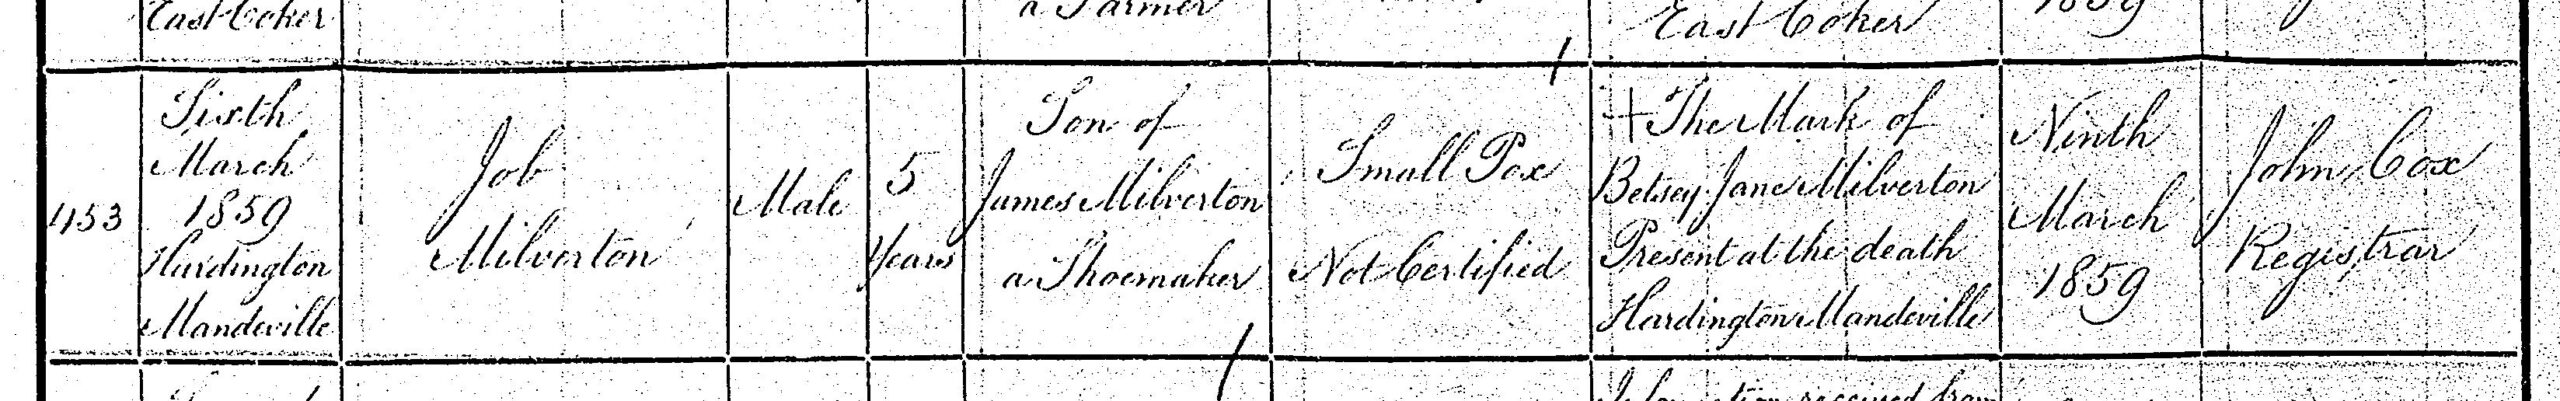 East Coker
a Farmer
East Coker
1859
453
Sixth
March
1859
Hardington
Mandeville
Job
Milverton
Male
5
Years
Son of
James Milverton
a Shoemaker
Small Pox
Not Certified
The Mark of
Betsey Jane Milverton
Present at the death
Hardington Mandeville
Ninth
March
1859
John Cox
Registrar
received from